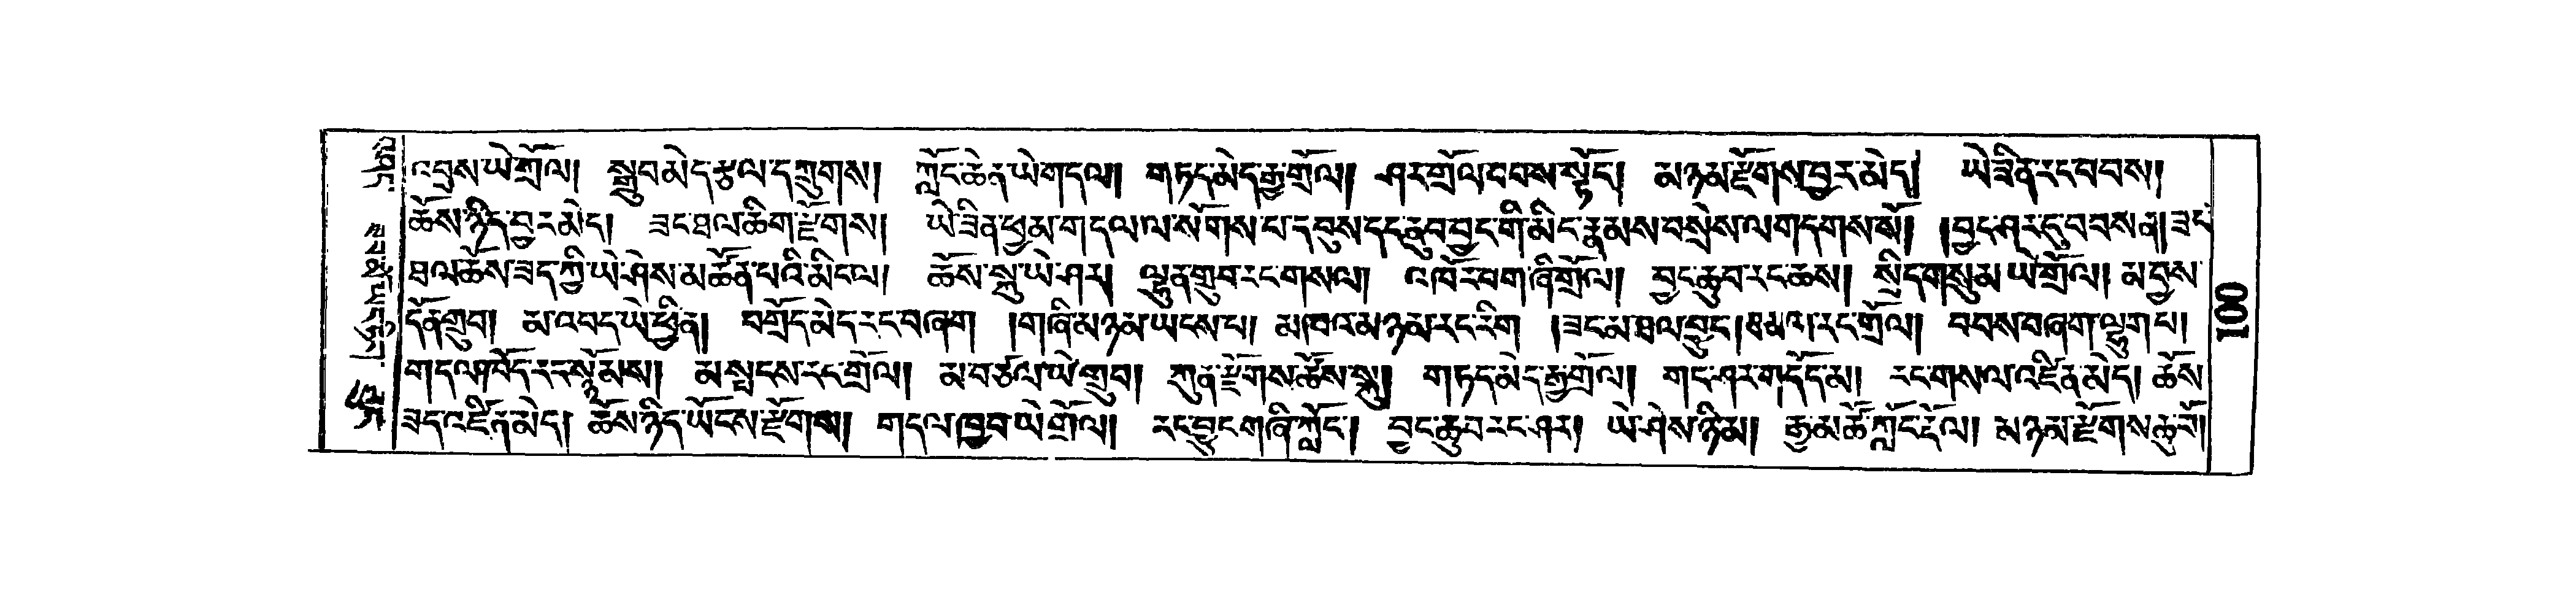 འབྲས་ཡེ་གྲོལ། སྒྲུབ་མེད་རྩལ་དཀྲུགས། ཀློང་ཆེན་ཡེ་གདལ། གཏད་མེད་རྒྱ་གྲོལ། ཤར་གྲོལ་བབས་སྟོད། མཉམ་རྫོགས་བྱར་མེད། ཡེ་ཟིན་རང་བབས།
ཆོས་ཉིད་བྱར་མེད། ཟང་ཐལ་ཆིག་རྫོགས། ཡེ་ཟིན་ཕྱམ་གདལ་ལ་སོགས་པ་དབུས་དང་ནུབ་བྱང་གི་མིང་རྣམས་བསྲེས་ལ་གདགས་སོ། །བྱང་ཤར་དུ་བབས་ན། ཟང་
ཐལ་ཆོས་ཟད་ཀྱི་ཡེ་ཤེས་མཚོན་པའི་མིང་ལ། ཆོས་སྐུ་ཡེ་ཤར། ལྷུན་གྲུབ་རང་གསལ། འཁོར་བག་ཞི་གྲོལ། བྱང་ཆུབ་རང་ཆས། སྲིད་གསུམ་ཡེ་གྲོལ། མ་བྱས་
དོན་གྲུབ། མ་འབད་ཡེ་ཕྱིན། བགྲོད་མེད་རང་བཞག །གཞི་མཉམ་ཡངས་པ། མཁའ་མཉམ་རང་རིག །ཟང་མ་ཐལ་བྱུང། རང་གྲོལ། བབས་བཞག་ལྷུག་པ།
གདལ་ རང་སྙོམས། མ་སྤངས་རང་གྲོལ། མ་བཙལ་ཡེ་གྲུབ། ཀུན་རྫོགས་ཆོས་སྐུ། གཏད་མེད་རྒྱ་གྲོལ། གང་ཤར་གདོད་མ། རང་གསལ་འཛིན་མེད། ཆོས་
ཟད་འཛིན་མེད། ཆོས་ཉིད་ཡོངས་རྫོགས། གདལ་ཁྱབ་ཡེ་གྲོལ། རང་བྱུང་གཞི་ཀློང་། བྱང་ཆུབ་རང་ཤར། ཡེ་ཤེས་ཉི་མ། རྒྱ་མཚོ་ཀློང་རྡོལ། མཉམ་རྫོགས་ཆུ་བོ།